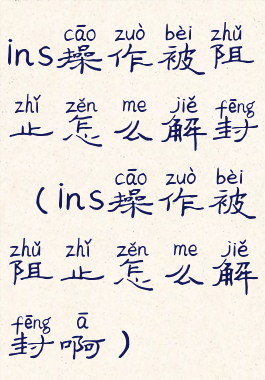 cāo zuò bèi zhǔ
ins操作被阻
zhǐ zěn me jiě fēng
止怎么解封
cāo zuò bèi
(ins操作被
zhǔ zhǐ zěn me jiě
阻止怎么解
fēng ā
封啊)